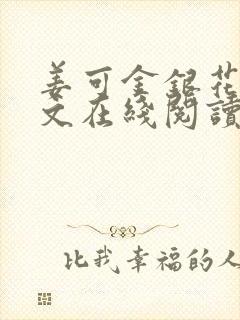 姜可金银花
文在线阅读
比我幸福的人